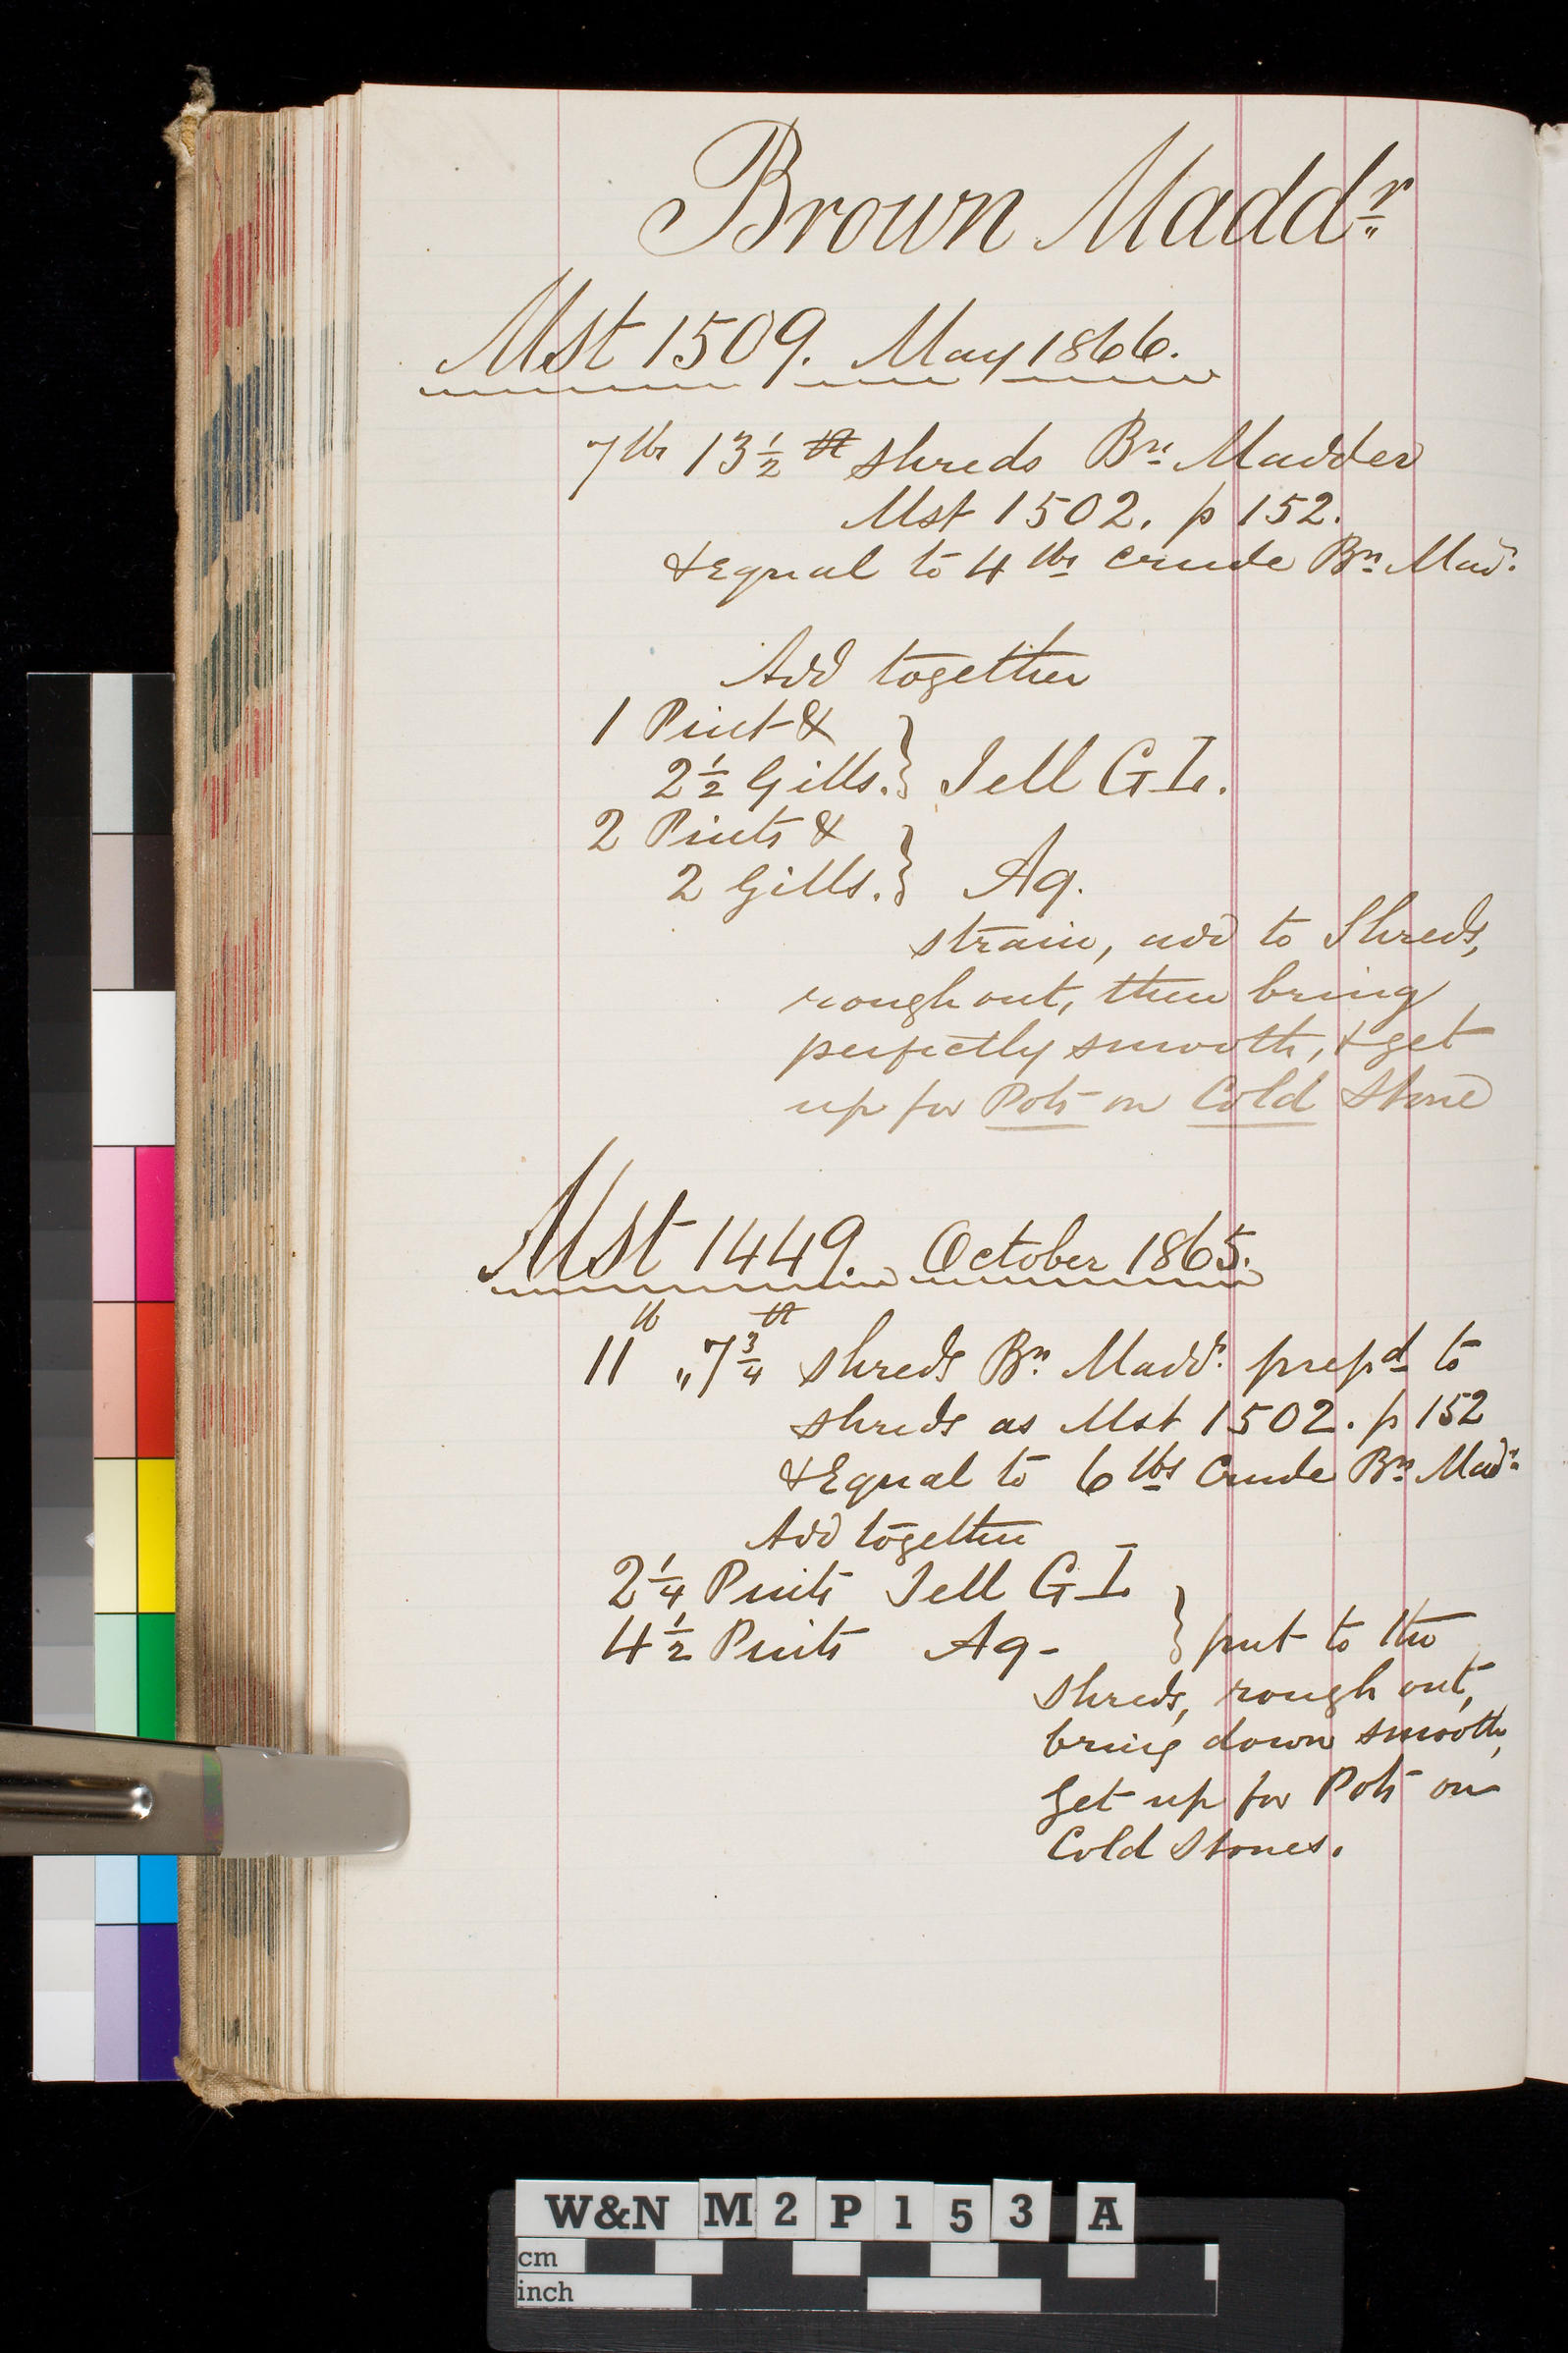 Brown Maddr
Mst 1509. May 1866.
7 lbs 13 1/2 shreds Brn Madder
Mst 1502. p 152.
& Equal to 4 lbs crude Brn Madr
Add together
1 Pint &
2 1/2 Gills. } Jell G I.
2 Pints &
2 Gills. } Aq.
strain, add to Shreds,
rough out, then bring
perfectly smooth, & get
up for Pots on Cold Stone
Mst 1449. October 1865.
11 lb "7 3/4 shreds Brn Maddr prepd to
shreds as Mst 1502. p 152
& Equal to 6 lbs Crude Brn Madr
Add together
2 1/4 Pints Jell G I
4 1/2 Pints Aq - } put to the
shreds, rough out,
bring down smooth,
get up for Pots on
Cold Stones.
W&N M2P153 A
cm
inch